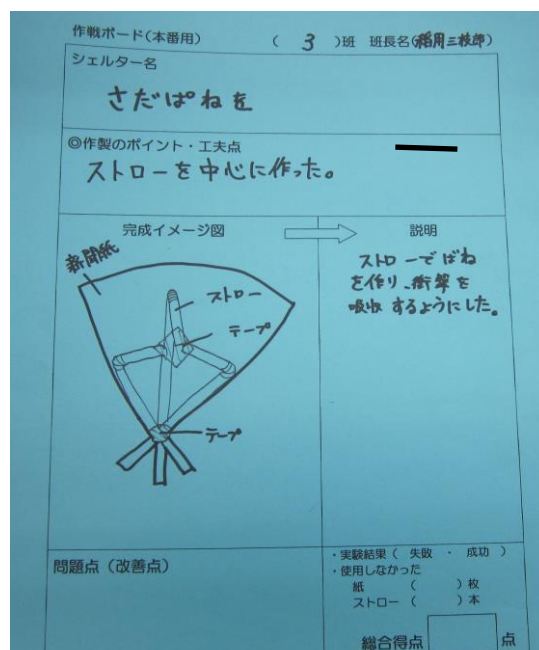 作戦ボード(本番用) ( 3 )班 班長名(稲用三枝郎)
シェルター名
さだぱねを
◎作製のポイント・工夫点
ストローを中心に作った。
完成イメージ図
説明
新聞紙
ストロー
テープ
テープ
ストローでばね
を作り、衝撃を
吸収するようにした。
問題点(改善点)
・実験結果( 失敗 ・ 成功 )
・使用しなかった
紙 ( )枚
ストロー ( )本
総合得点 点